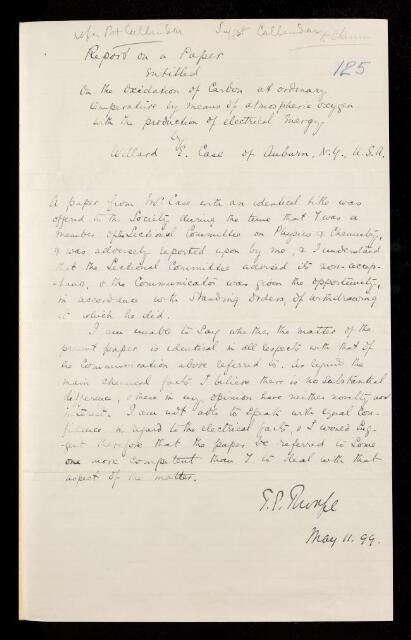 refer Prf Callendar Suggst Callendar
Report on a Paper
Entitled
125
On the Oxidation of Carbon at ordinary
temperature by means of atmospheric oxygen
with the production of electrical energy
by
Willard E. Case of Auburn, N.Y., U.S.A.
A paper from Mr Case with an identical title was
offered to the Society during the time that I was a
member of the Sectional Committee on Physics & Chemistry,
& was adversely reported upon by me, & I understand
that the Sectional Committee advised its non-accep-
-tance, & the Communicator was given the opportunity,
in accordance with Standing Orders, of withdrawing
it which he did.
I am unable to say whether the matter of the
present paper is identical in all respects with that of
the Communication above referred to. As regards the
main chemical facts I believe there is no substantial
difference, & these in my opinion have neither novelty nor
interest. I am not able to speak with equal con-
fidence in regard to the electrical facts, & I would sug-
gest therefore that the paper be referred to some
one more competent than I to deal with that
aspect of the matter.
T.E. Thorpe
May 11. 99.